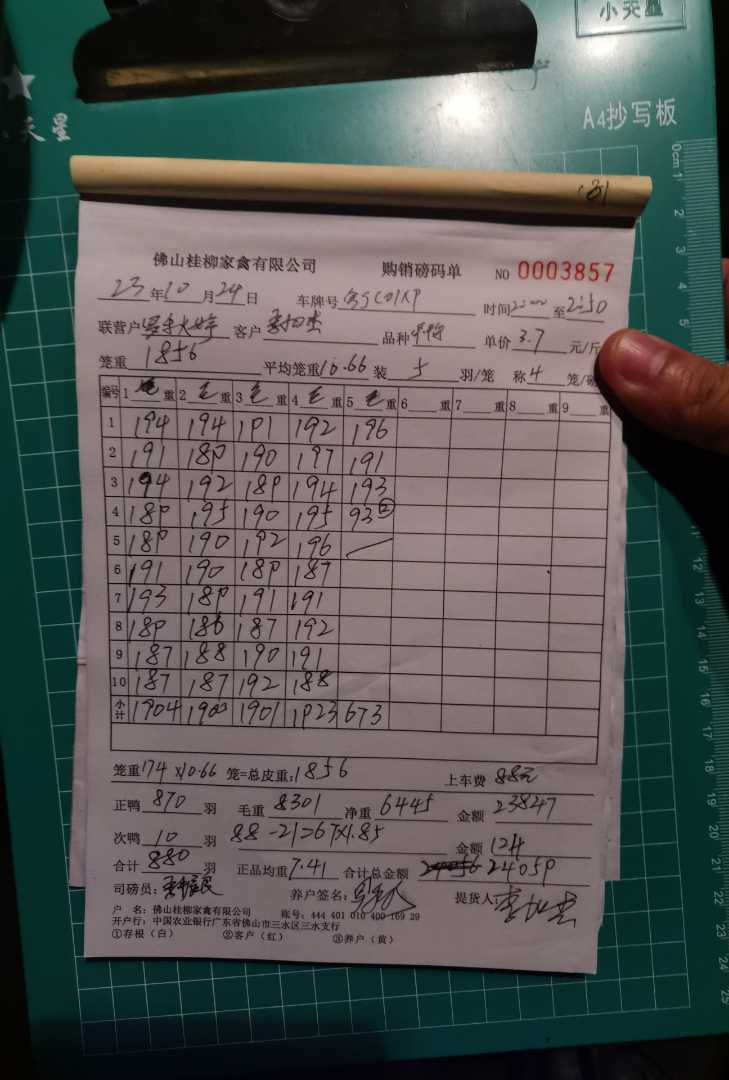 小天星
天星
A4抄写板
0cm 1
181
佛山桂柳家禽有限公司 购销磅码单 NO 0003857
23年10月24日 车牌号 时间2:00至2:50
联营户 客户 品种 单价3.7元/斤
笼重1856 平均笼重10.66装5羽/笼 称4笼/磅
编号 1毛重 2毛重 3毛重 4毛重 5毛重 6重 7重 8重 9重
1 194 194 191 192 196
2 191 189 190 197 191
3 194 192 189 194 193
4 189 195 190 195 93②
5 189 190 192 196
6 191 190 189 187
7 193 189 191 191
8 189 186 187 192
9 187 188 190 191
10 187 187 192 188
小计 1904 1900 1901 1923 673
笼重174×10.66笼=总皮重:1856 上车费88元
正鸭870羽 毛重8301 净重6445 金额23847
次鸭10羽 88-21=67×1.85 金额124
合计880羽 正品均重7.41 合计总金额24059
司磅员: 养户签名: 提货人:
户 名:佛山桂柳家禽有限公司 账号:444 401 010 400 169 29
开户行:中国农业银行广东省佛山市三水区三水支行
①存根(白) ②客户(红) ③养户(黄)